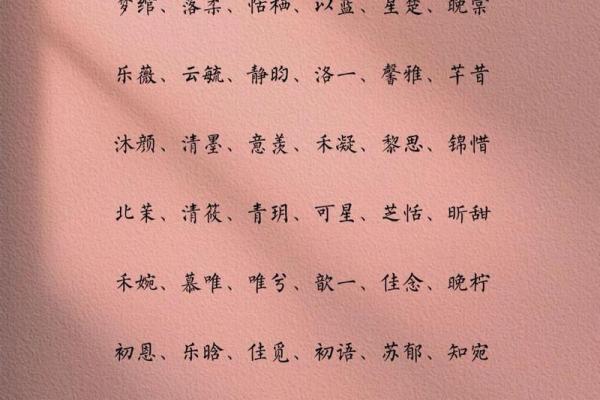 梦绾、洛柔、恬栖、以蓝、星楚、晚棠
乐薇、云毓、静昀、洛一、馨雅、芊昔
沐颜、清墨、意羡、禾凝、黎思、锦惜
北茉、清筱、青玥、可星、芝恬、昕甜
禾婉、慕唯、唯兮、歆一、佳念、晚柠
初恩、乐晗、佳觅、初语、苏郁、知宛